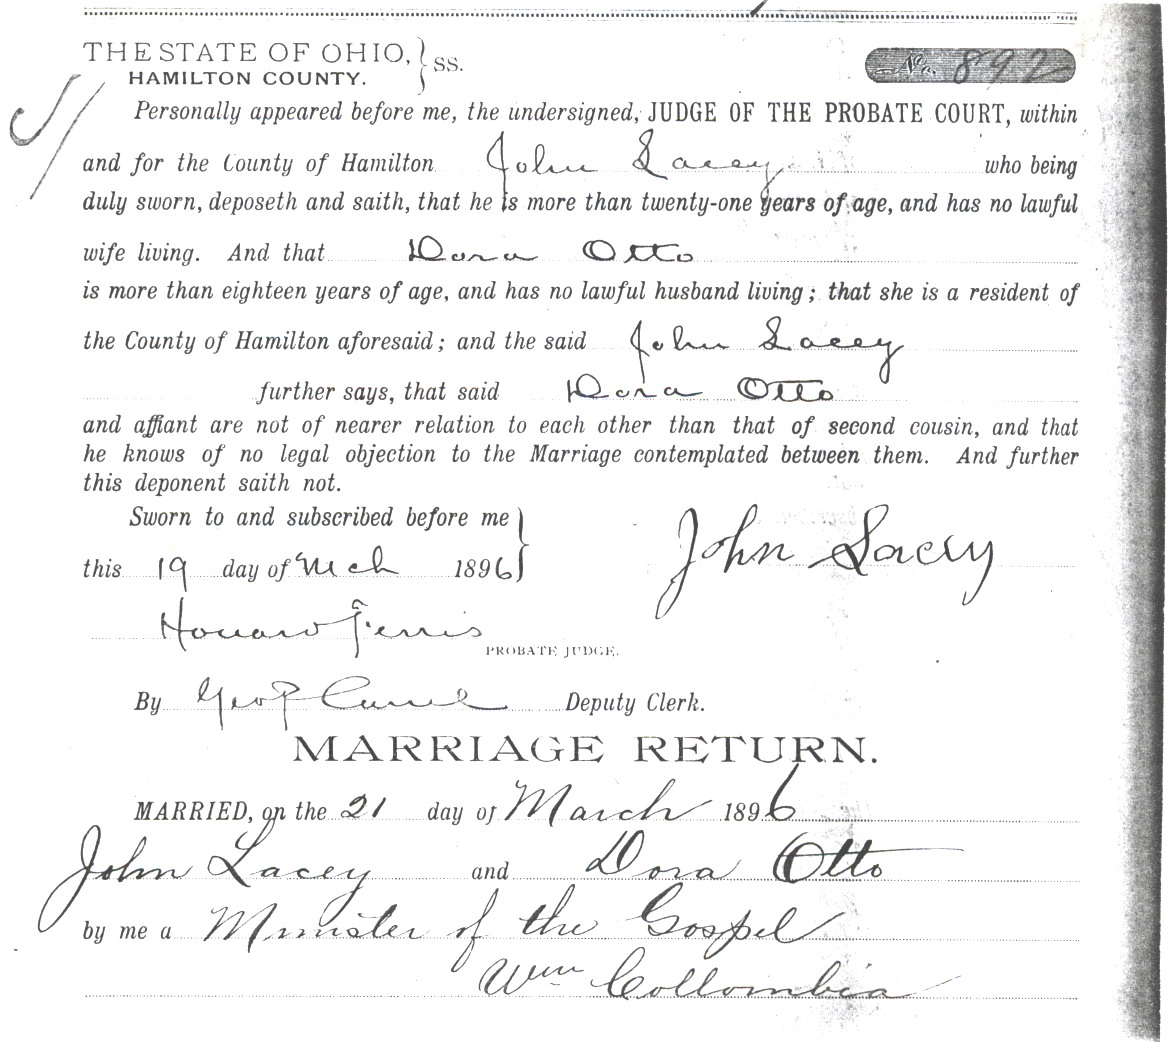 THE STATE OF OHIO, } SS.
HAMILTON COUNTY.
No. 892
Personally appeared before me, the undersigned, JUDGE OF THE PROBATE COURT, within
and for the County of Hamilton John Lacey who being
duly sworn, deposeth and saith, that he is more than twenty-one years of age, and has no lawful
wife living. And that Dora Otto
is more than eighteen years of age, and has no lawful husband living; that she is a resident of
the County of Hamilton aforesaid; and the said John Lacey
further says, that said Dora Otto
and affiant are not of nearer relation to each other than that of second cousin, and that
he knows of no legal objection to the Marriage contemplated between them. And further
this deponent saith not.
Sworn to and subscribed before me }
this 19 day of Mch 1896
John Lacey
Howard Ferris
PROBATE JUDGE.
By Geo Deputy Clerk.
MARRIAGE RETURN.
MARRIED, on the 21 day of March 1896
John Lacey and Dora Otto
by me a Minister of the Gospel
Wm Collombia